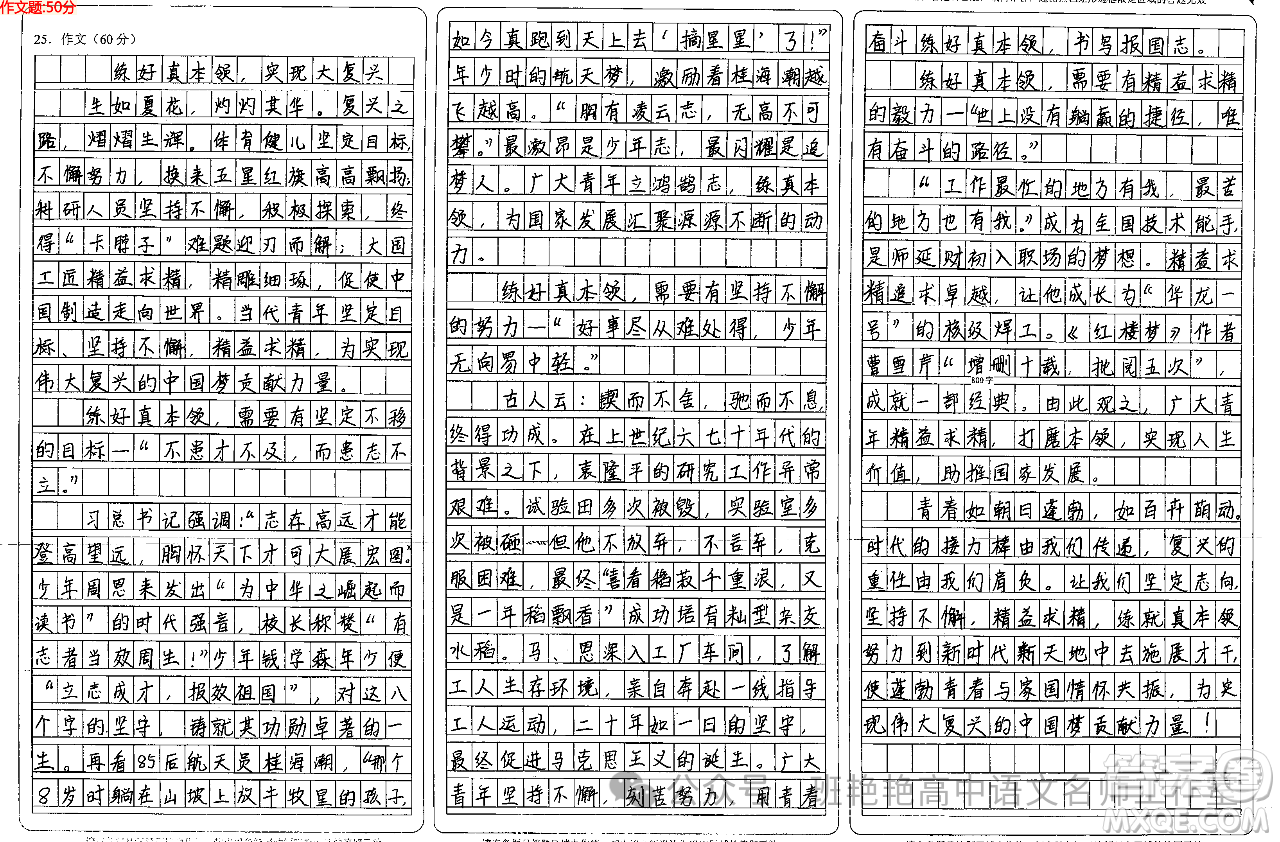 作文题:50分
25．作文（60分）
练好真本领，实现大复兴
生如夏花，灼灼其华。复兴之
路，熠熠生辉。体育健儿坚定目标，
不懈努力，换来五星红旗高高飘扬；
科研人员坚持不懈，积极探索，终
得“卡脖子”难题迎刃而解；大国
工匠精益求精，精雕细琢，促使中
国制造走向世界。当代青年坚定目
标、坚持不懈，精益求精，为实现
伟大复兴的中国梦贡献力量。
练好真本领，需要有坚定不移
的目标—“不患才不及，而患志不
立。”
习总书记强调：“志存高远才能
登高望远，胸怀天下才可大展宏图。”
少年周恩来发出“为中华之崛起而
读书”的时代强音，校长称赞“有
志者当效周生！”少年钱学森年少便
“立志成才，报效祖国”，对这八
个字的坚守，铸就其功勋卓著的一
生。再看85后航天员桂海潮，“那个
8岁时躺在山坡上放牛牧星的孩子，
如今真跑到天上去‘摘星星’了！”
年少时的航天梦，激励着桂海潮越
飞越高。“胸有凌云志，无高不可
攀。”最激昂是少年志，最闪耀是追
梦人。广大青年立鸿鹄志，练真本
领，为国家发展汇聚源源不断的动
力。
练好真本领，需要有坚持不懈
的努力—“好事尽从难处得，少年
无向易中轻。”
古人云：锲而不舍，驰而不息，
终得功成。在上世纪六七十年代的
背景之下，袁隆平的研究工作异常
艰难。试验田多次被毁，实验室多
次被砸—但他不放弃，不言弃，克
服困难，最终“喜看稻菽千重浪，又
是一年稻飘香”成功培育籼型杂交
水稻。马、恩深入工厂车间，了解
工人生存环境，亲自奔赴一线指导
工人运动，二十年如一日的坚守，
最终促进马克思主义的诞生。广大
青年坚持不懈，刻苦努力，用青春
奋斗练好真本领，书写报国志。
练好真本领，需要有精益求精
的毅力—“世上没有躺赢的捷径，唯
有奋斗的路径。”
“工作最忙的地方有我，最苦
的地方也有我。”成为全国技术能手，
是师延财初入职场的梦想。精益求
精追求卓越，让他成长为“华龙一
号”的核级焊工。《红楼梦》作者
曹雪芹“增删十载，批阅五次”，
800字
成就一部经典。由此观之，广大青
年精益求精，打磨本领，实现人生
价值，助推国家发展。
青春如朝日蓬勃，如百卉萌动。
时代的接力棒由我们传递，复兴的
重任由我们肩负。让我们坚定志向，
坚持不懈，精益求精，练就真本领
努力到新时代新天地中去施展才干，
使蓬勃青春与家国情怀共振，为实
现伟大复兴的中国梦贡献力量！
公众号 班艳艳高中语文名师工作室
答案圈
MXQE.COM